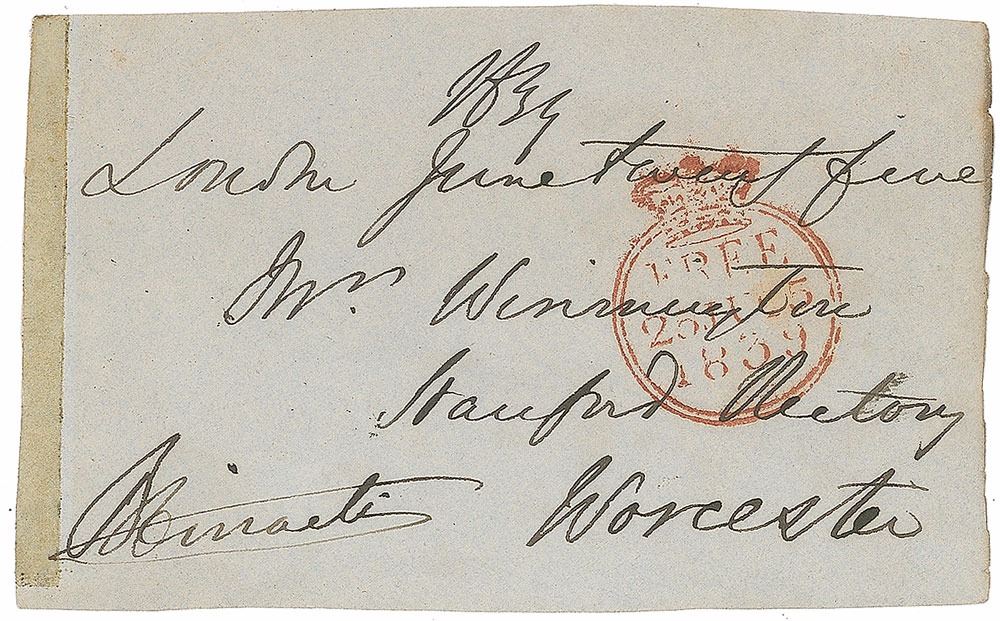 1839
London June twenty five
FREE
25 JU 5
1839
Mrs Winnington
Stanford Rectory
Worcester